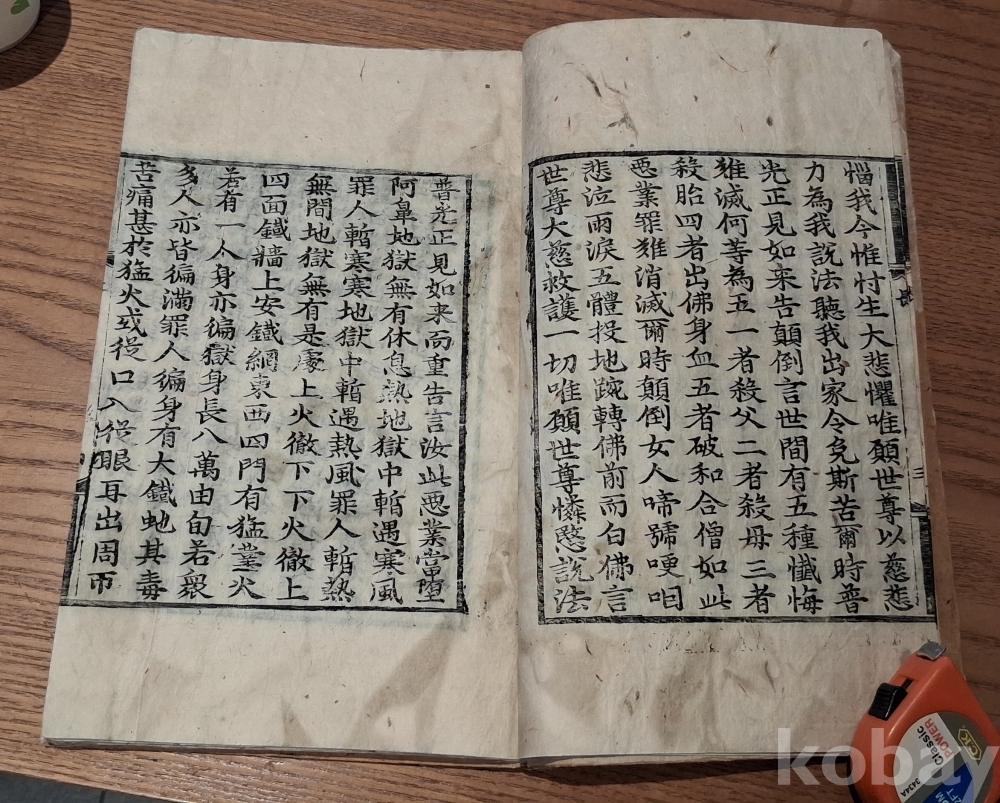 惱我今惟忖生大悲懼唯願世尊以慈悲
力為我說法聽我出家令免斯苦爾時普
光正見如来告顛倒言世間有五種懺悔
難滅何等為五一者殺父二者殺母三者
殺胎四者出佛身血五者破和合僧如此
惡業罪難消滅爾時顛倒女人啼號哽咽
悲泣雨淚五體投地踠轉佛前而白佛言
世尊大慈救護一切唯願世尊憐愍說法
普光正見如来而重告言汝此惡業當墮
阿鼻地獄無有休息熱地獄中暫遇寒風
罪人暫寒寒地獄中暫遇熱風罪人暫熱
無間地獄無有是處上火徹下下火徹上
四面鐵牆上安鐵網東西四門有猛業火
若有一人身亦徧獄身長八萬由旬若衆
多人亦皆徧滿罪人徧身有大鐵虵其毒
苦痛甚於猛火或從口入從眼耳出周帀
kobay
Classic
POWER
3434A